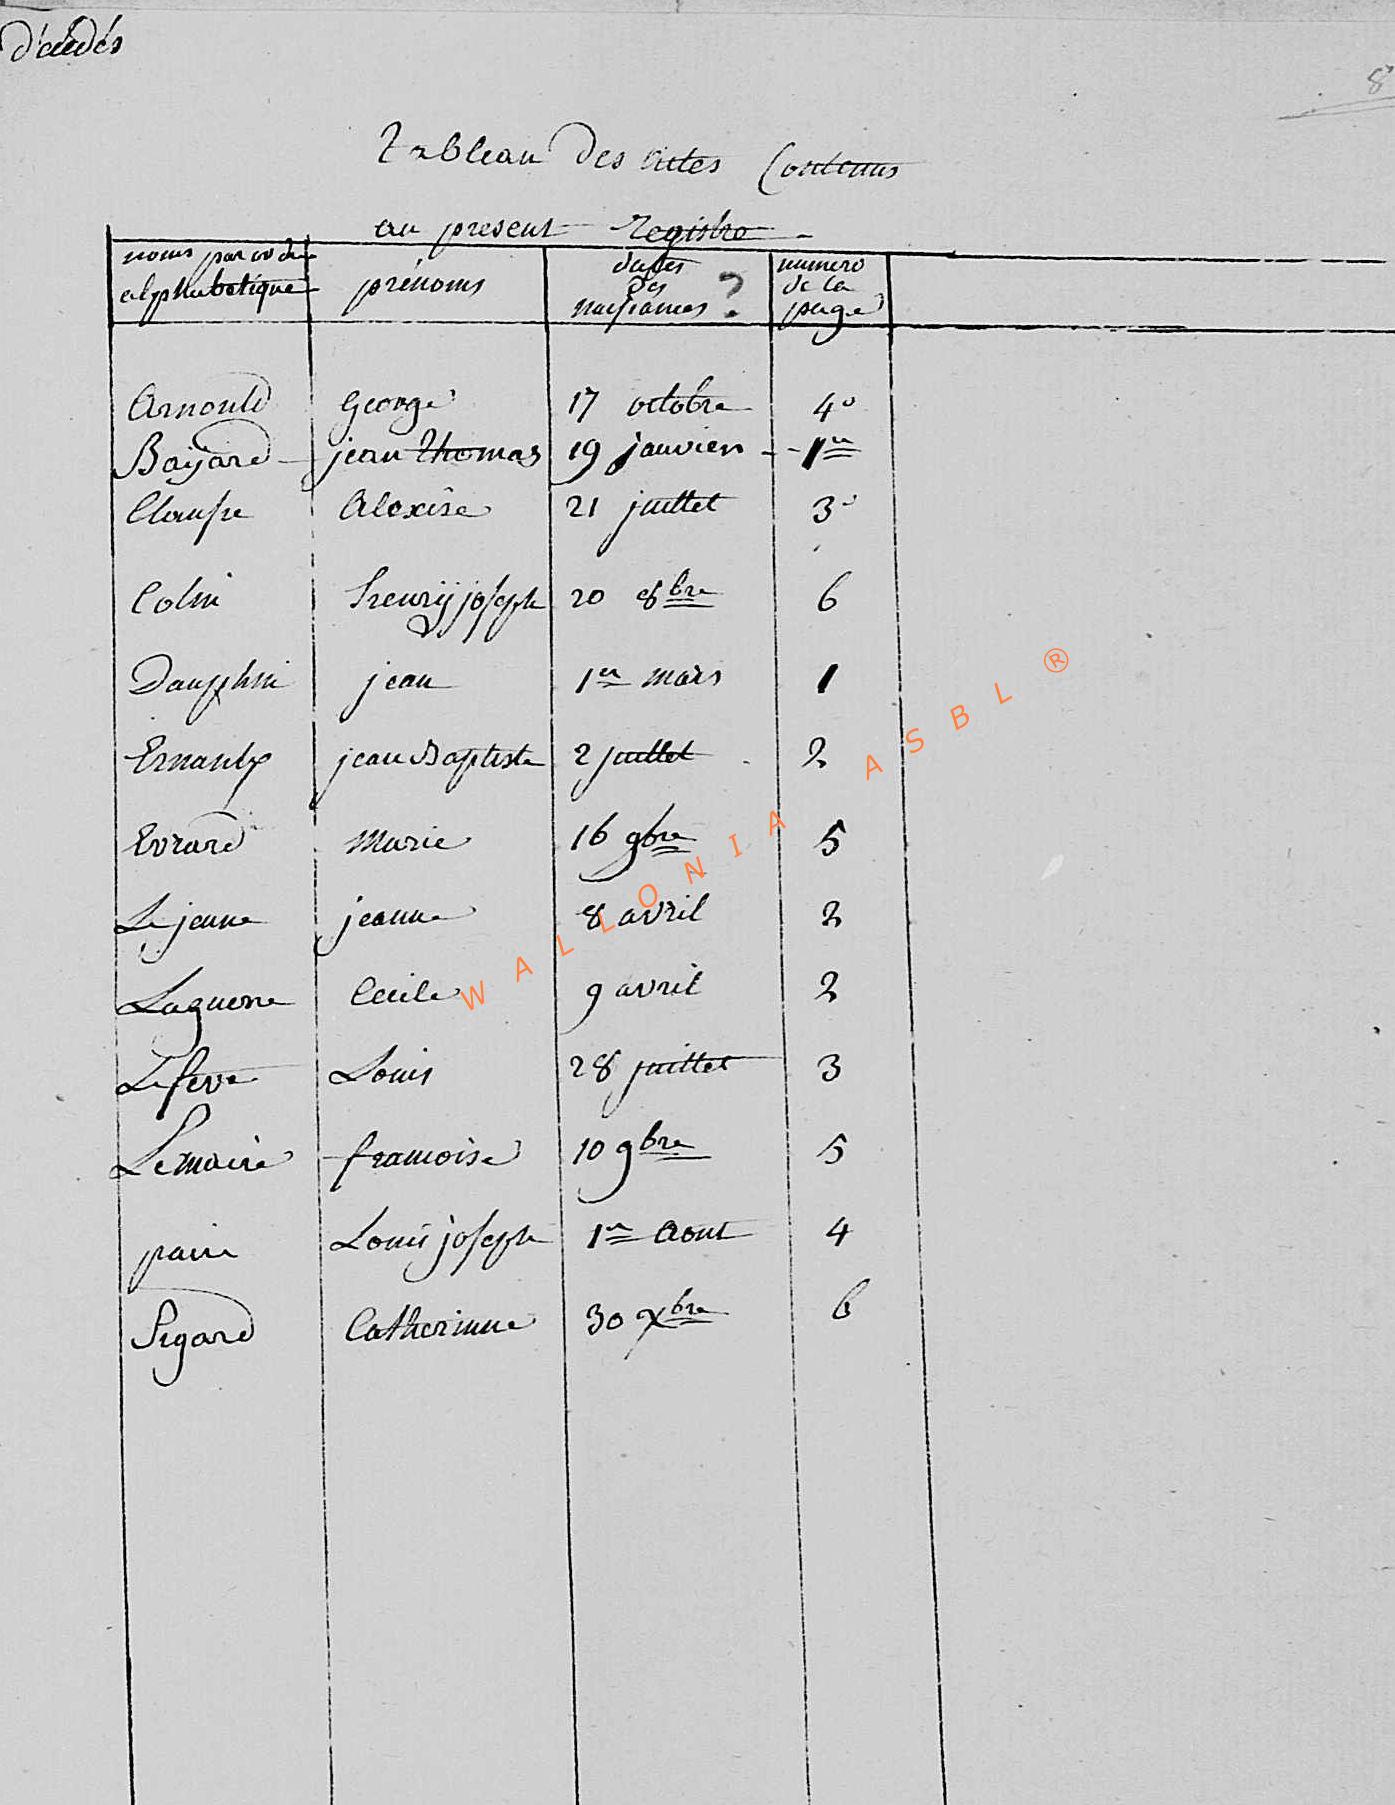 décédés
8
Tableau des actes Contenus
au present Registre
noms par ordre alphabetique prénoms dates des naissances ? numero de la page
Arnould George 17 octobre 4e
Bayard jean thomas 19 janvier 1er
Clausse Alexise 21 juillet 3e
Colin henry joseph 20 8bre 6
Dauphin jean 1er mars 1
Ernaux jean Baptiste 2 juillet 2
Evrard Marie 16 9bre 5
Lejeune jeanne 8 avril 2
Laguerre Cecile 9 avril 2
Lefevre Louis 28 juillet 3
Lemaire francoise 10 9bre 5
pain Louis joseph 1er Aout 4
Pigard Catherinne 30 xbre 6
WALLONIA ASBL ®